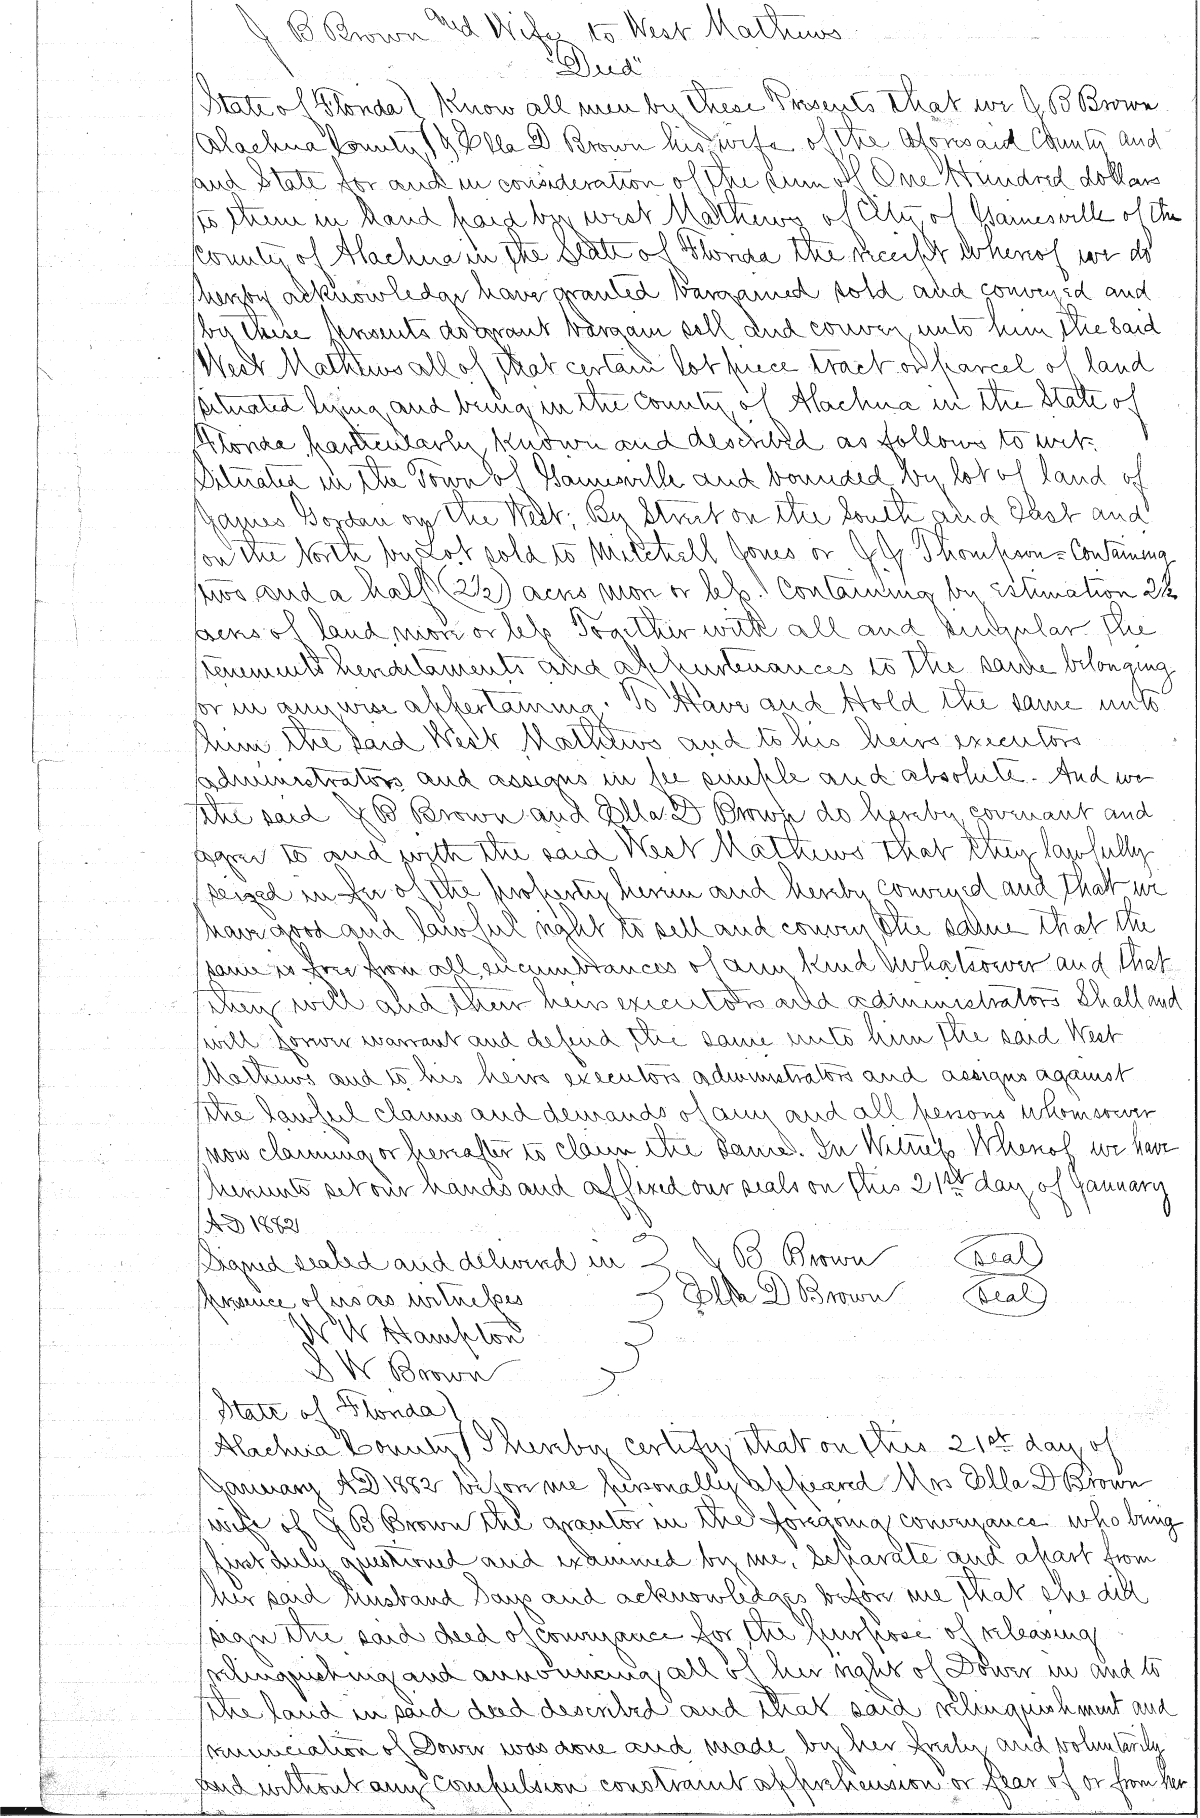 J B Brown and Wife to West Mathews
"Deed"
State of Florida ( Know all men by these Presents that we J B Brown
Alachua County ) & Ella D Brown his wife of the aforesaid County and
and State for and in consideration of the sum of One Hundred dollars
to them in hand paid by West Mathews of City of Gainesville of the
county of Alachua in the State of Florida the receipt whereof we do
hereby acknowledge have granted bargained sold and conveyed and
by these presents do grant bargain sell and convey unto him the said
West Mathews all of that certain lot piece tract or parcel of land
situated lying and being in the County of Alachua in the State of
Florida particularly known and described as follows to wit:
Situated in the Town of Gainesville and bounded by lot of land of
James Gordan on the West; By Street on the South and East and
on the North by Lot sold to Mitchell Jones or J J Thompson = Containing
two and a half (2½) acres more or less. Containing by Estimation 2½
acres of land more or less Together with all and singular the
tenements hereditaments and appurtenances to the same belonging
or in anywise appertaining. To Have and Hold the same unto
him the said West Mathews and to his heirs executors
administrators and assigns in fee simple and absolute. And we
the said J B Brown and Ella D Brown do hereby covenant and
agree to and with the said West Mathews that they lawfully
seized in fee of the property herein and hereby conveyed and that we
have good and lawful right to sell and convey the same that the
same is free from all encumbrances of any kind whatsoever and that
they will and their heirs executors and administrators Shall and
will forever warrant and defend the same unto him the said West
Mathews and to his heirs executors administrators and assigns against
the lawful claims and demands of any and all persons whomsoever
now claiming or hereafter to claim the same. In Witness Whereof we have
hereunto set our hands and affixed our seals on this 21st day of January
AD 1882
Signed sealed and delivered in J B Brown (Seal)
presence of us as witnesses Ella D Brown (Seal)
W W Hampton
S W Brown
State of Florida )
Alachua County ) I hereby certify that on this 21st day of
January AD 1882 before me personally appeared Mrs Ella D Brown
wife of J B Brown the grantor in the foregoing conveyance who being
first duly questioned and examined by me, separate and apart from
her said husband Says and acknowledges before me that she did
sign the said deed of conveyance for the purpose of releasing
relinquishing and announcing all of her right of Dower in and to
the land in said deed described and that said relinquishment and
renunciation of Dower was done and made by her freely and voluntarily
and without any compulsion constraint apprehension or fear of or from her